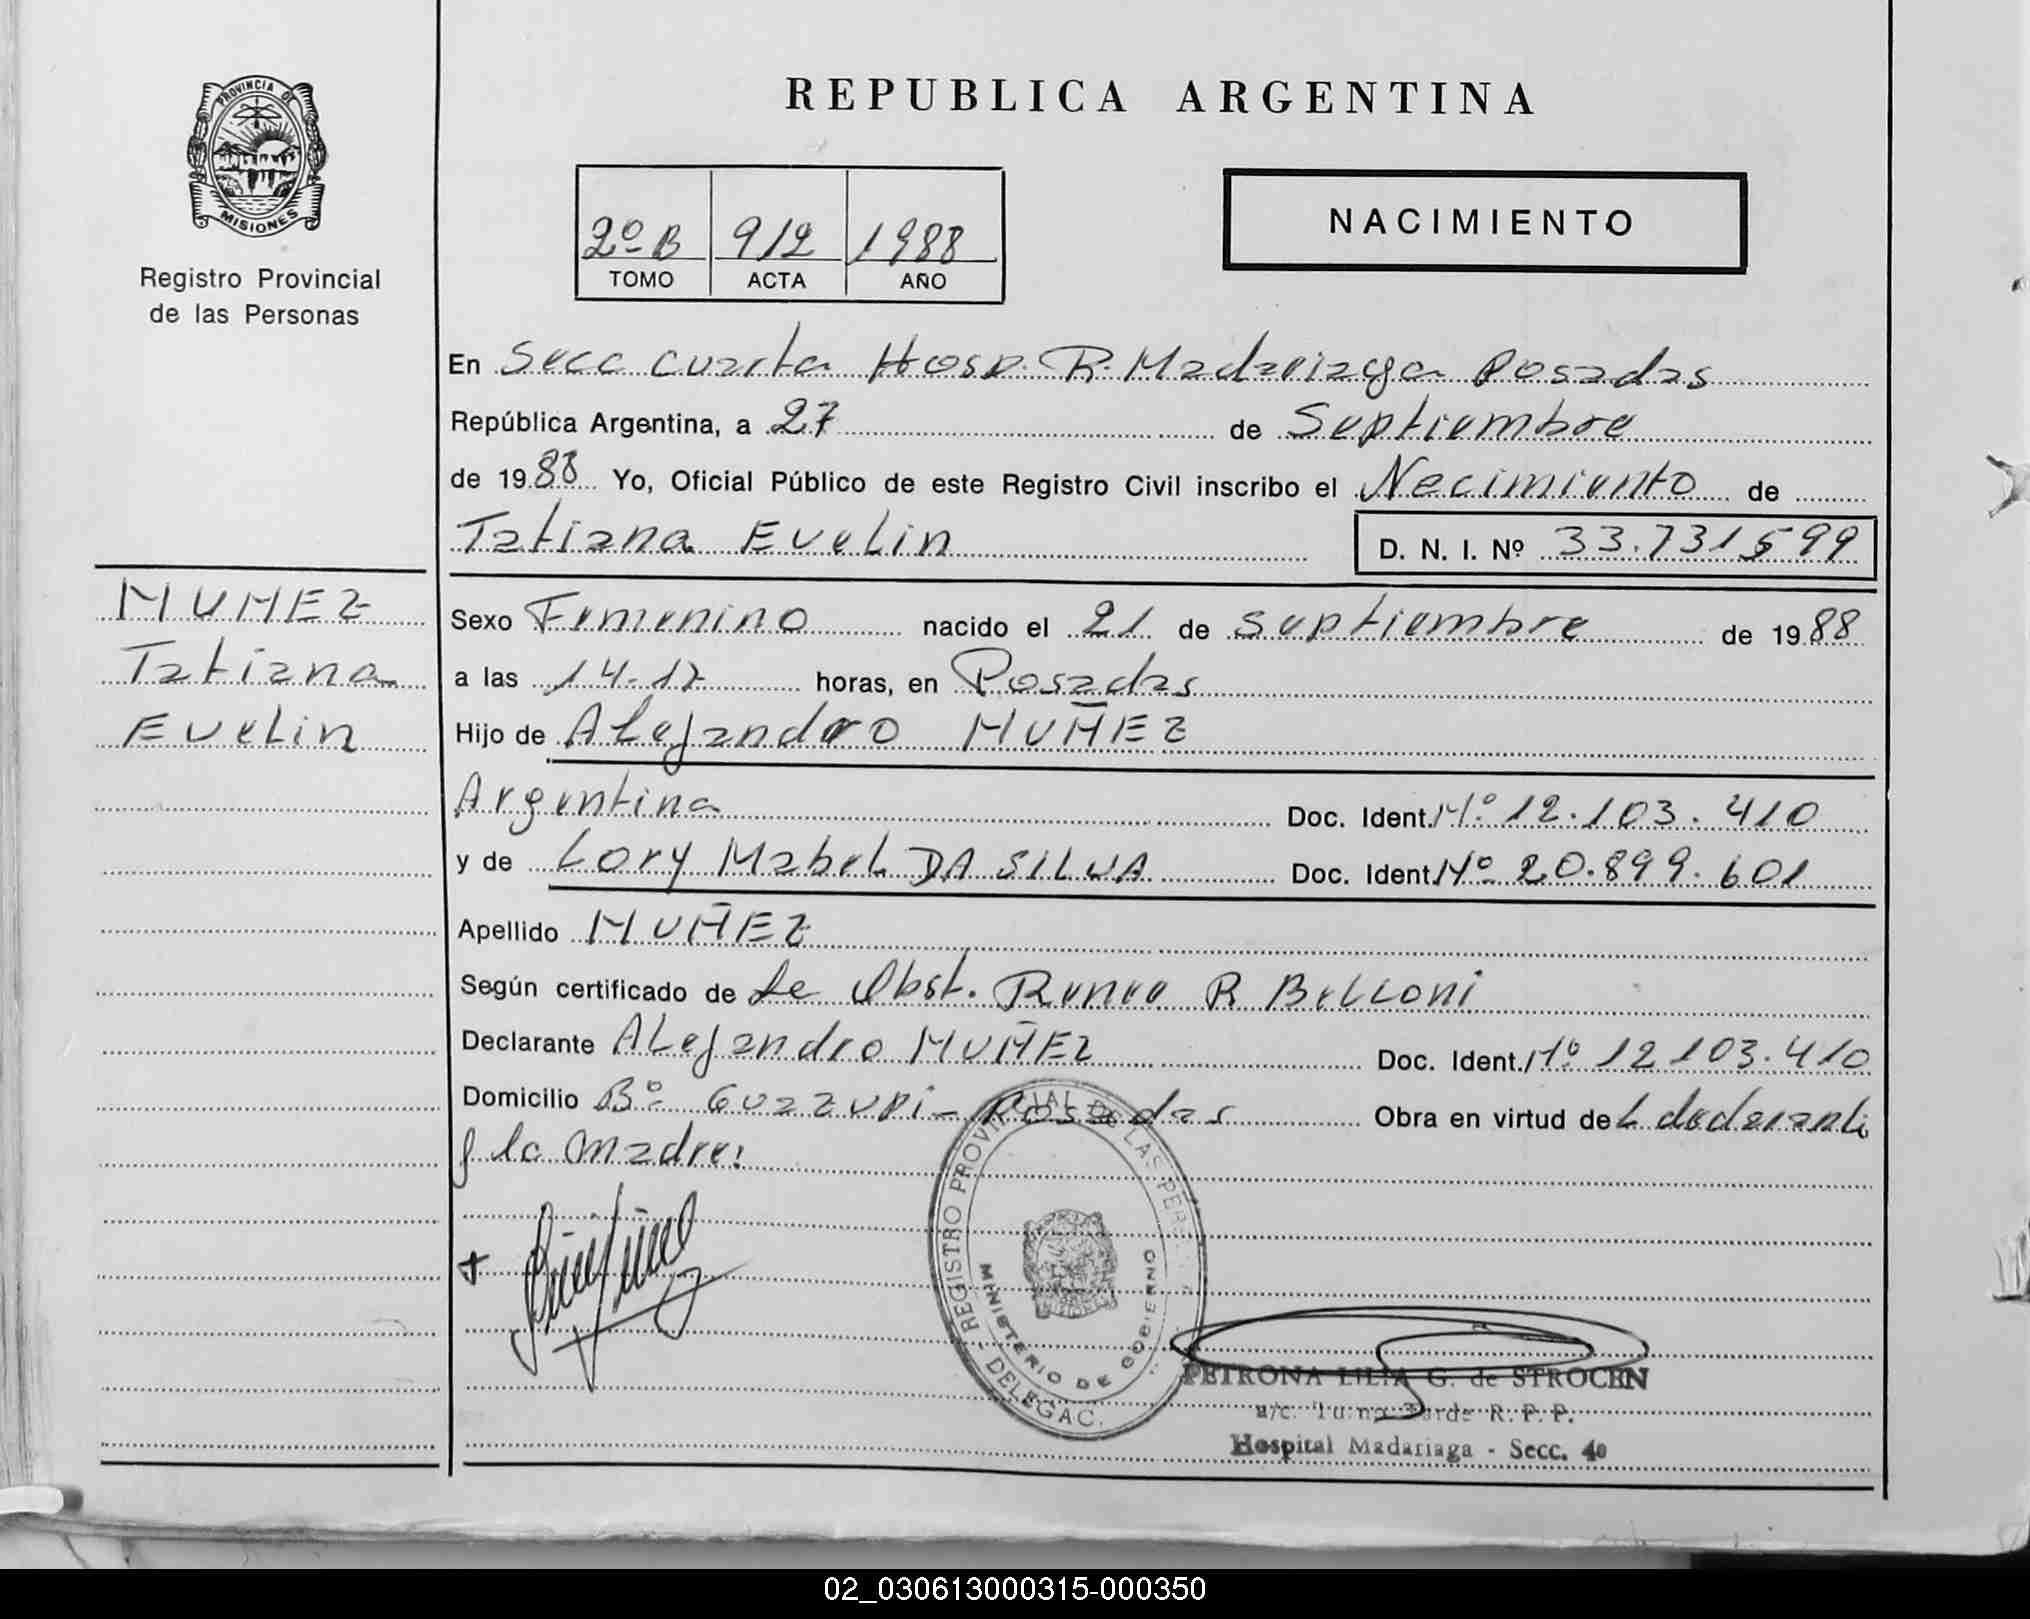 REPUBLICA ARGENTINA
PROVINCIA DE
MISIONES
Registro Provincial
de las Personas
2º B 912 1988
TOMO ACTA AÑO
NACIMIENTO
En Secc cuarta Hosp. R. Madariaga Posadas
República Argentina, a 27 de Septiembre
de 1988 Yo, Oficial Público de este Registro Civil inscribo el Nacimiento de
Tatiana Evelin D. N. I. Nº 33.731599
MUÑEZ
Tatiana
Evelin
Sexo Femenino nacido el 21 de Septiembre de 1988
a las 14-17 horas, en Posadas
Hijo de Alejandro MUÑEZ
Argentina Doc. Ident. Nº 12.103.410
y de Lory Mabel DA SILVA Doc. Ident. Nº 20.899.601
Apellido MUÑEZ
Según certificado de La Obst. Renee R Belloni
Declarante Alejandro MUÑEZ Doc. Ident. Nº 12 103.410
Domicilio Bº Posadas Obra en virtud de declarante
y la madre:
REGISTRO PROVINCIAL DE LAS PERS
MINISTERIO DE GOBIERNO
DELEGAC.
PETRONA LILIA G. de STROCEN
a/c. Turno Tarde R. P. P.
Hospital Madariaga - Secc. 4a
02_030613000315-000350